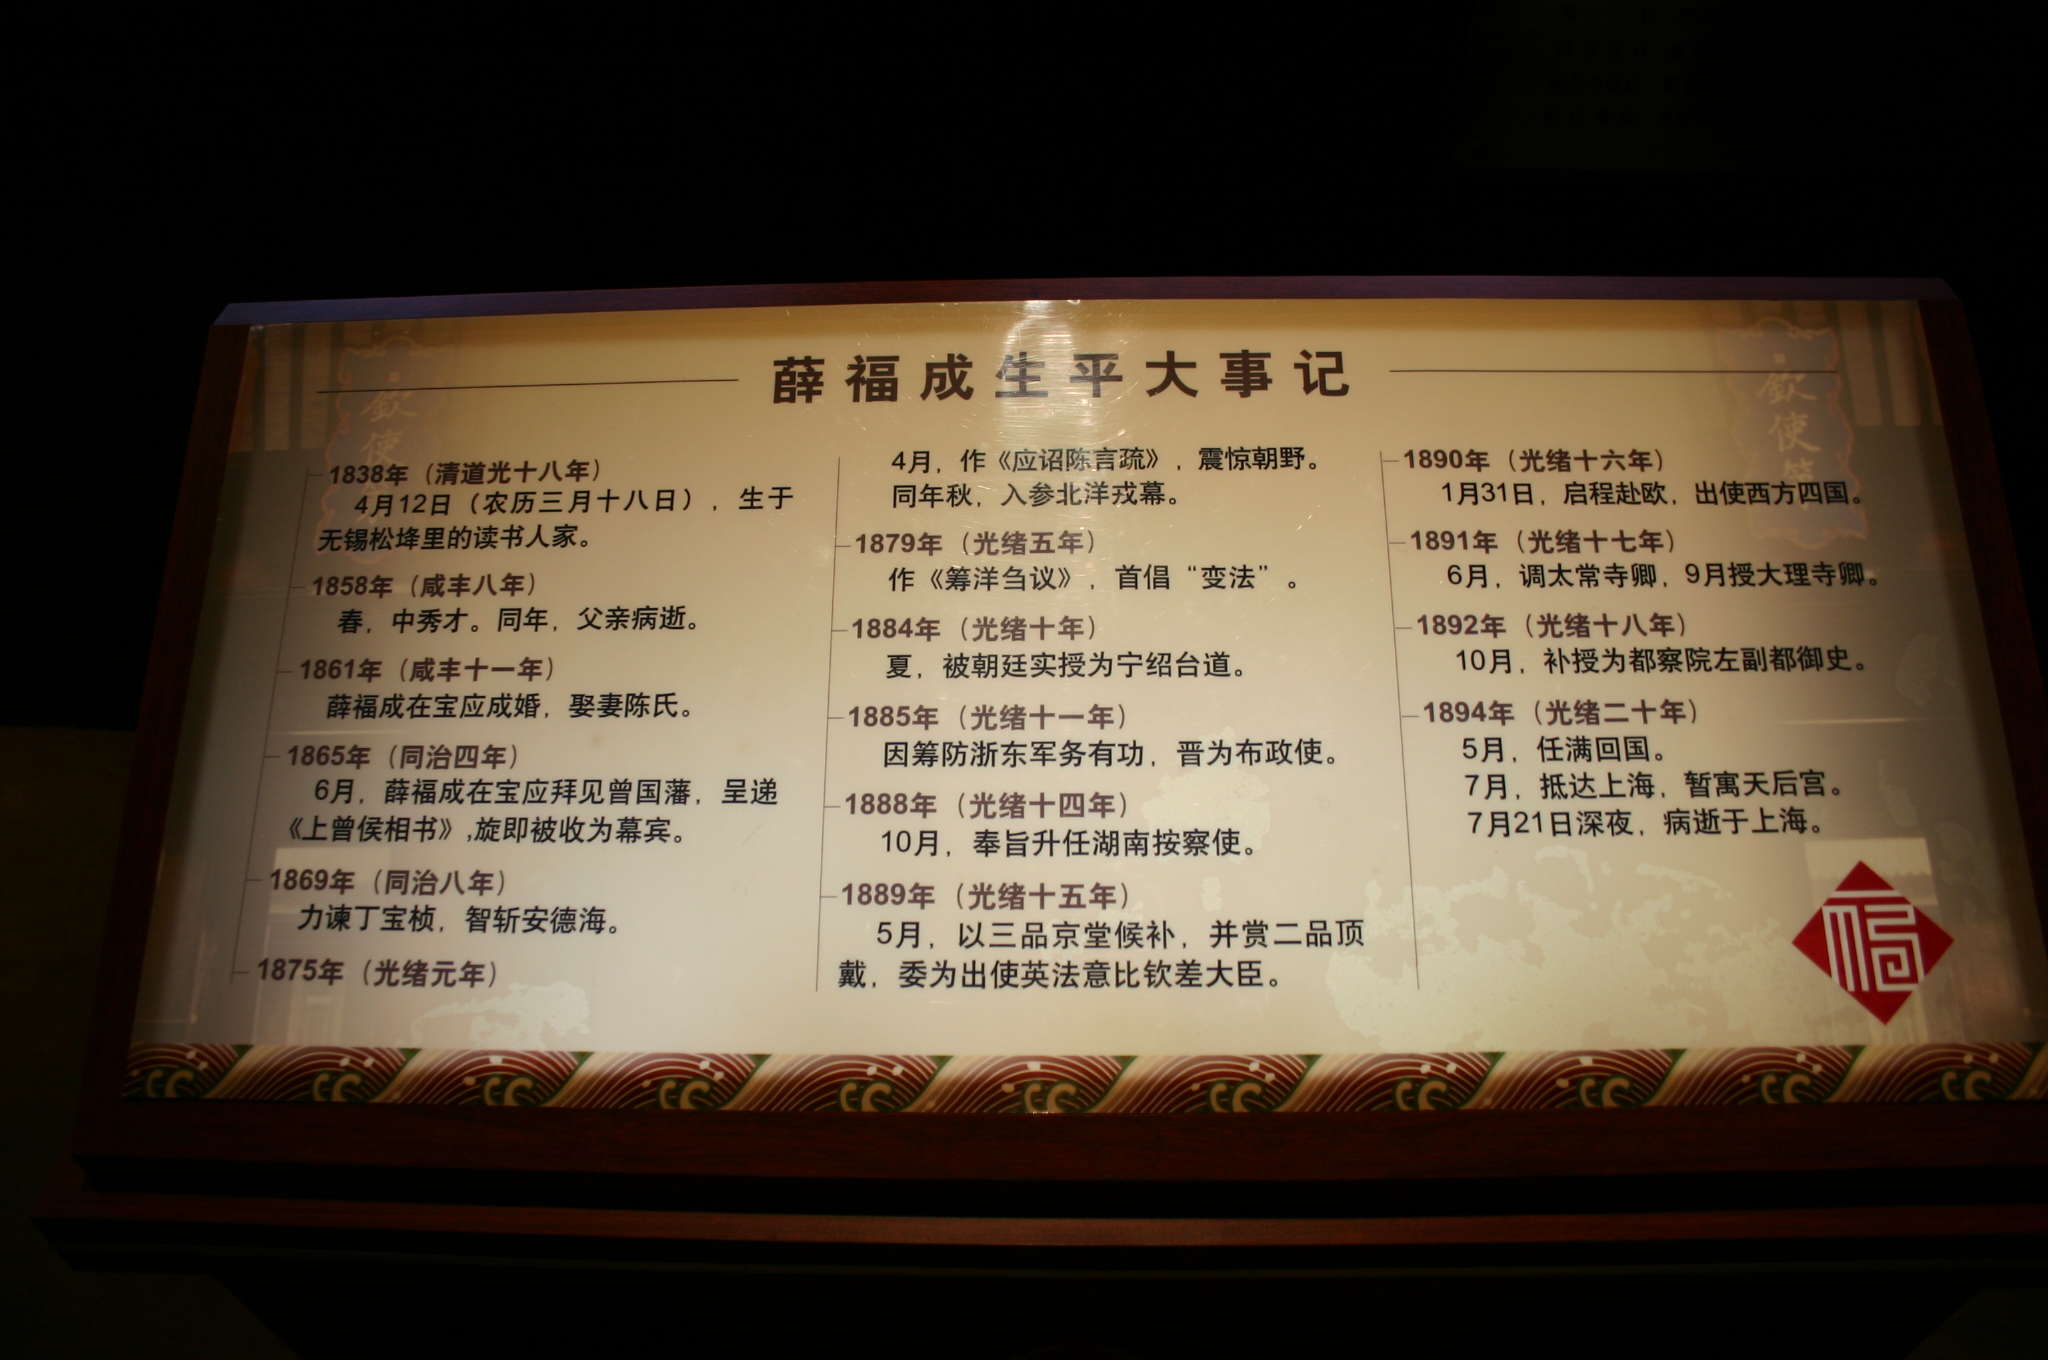 薛福成生平大事记
1838年（清道光十八年）
4月12日（农历三月十八日），生于
无锡松埄里的读书人家。
1858年（咸丰八年）
春，中秀才。同年，父亲病逝。
1861年（咸丰十一年）
薛福成在宝应成婚，娶妻陈氏。
1865年（同治四年）
6月，薛福成在宝应拜见曾国藩，呈递
《上曾侯相书》,旋即被收为幕宾。
1869年（同治八年）
力谏丁宝桢，智斩安德海。
1875年（光绪元年）
4月，作《应诏陈言疏》，震惊朝野。
同年秋，入参北洋戎幕。
1879年（光绪五年）
作《筹洋刍议》，首倡“变法”。
1884年（光绪十年）
夏，被朝廷实授为宁绍台道。
1885年（光绪十一年）
因筹防浙东军务有功，晋为布政使。
1888年（光绪十四年）
10月，奉旨升任湖南按察使。
1889年（光绪十五年）
5月，以三品京堂候补，并赏二品顶
戴，委为出使英法意比钦差大臣。
1890年（光绪十六年）
1月31日，启程赴欧，出使西方四国。
1891年（光绪十七年）
6月，调太常寺卿，9月授大理寺卿。
1892年（光绪十八年）
10月，补授为都察院左副都御史。
1894年（光绪二十年）
5月，任满回国。
7月，抵达上海，暂寓天后宫。
7月21日深夜，病逝于上海。
欽使
欽使